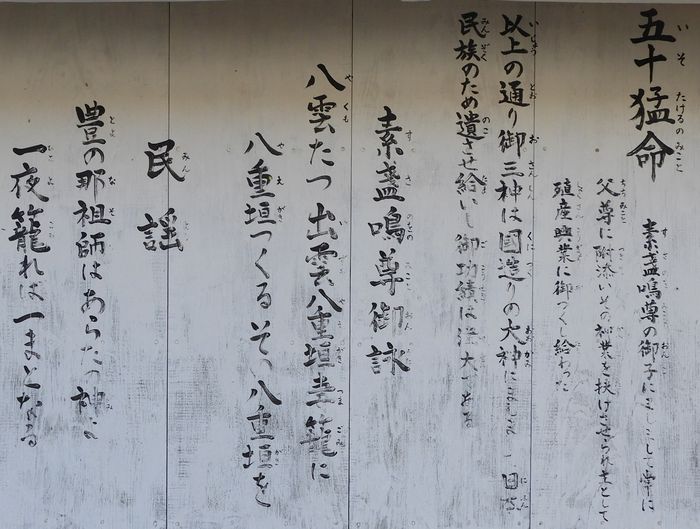 五十猛命
素盞嗚尊の御子にましまして常に
父尊に附添いその神業を扶けさせられ主として
殖産興業に御つくし給わった
以上の通り御三神は国造りの大神にまします 日本
民族のため遺させ給いし御功績は 大である
素盞嗚尊御詠
八雲たつ出雲八重垣妻籠に
八重垣つくるその八重垣を
民謡
豊の那祖師はあらたの神よ
一夜籠れは一まとなる